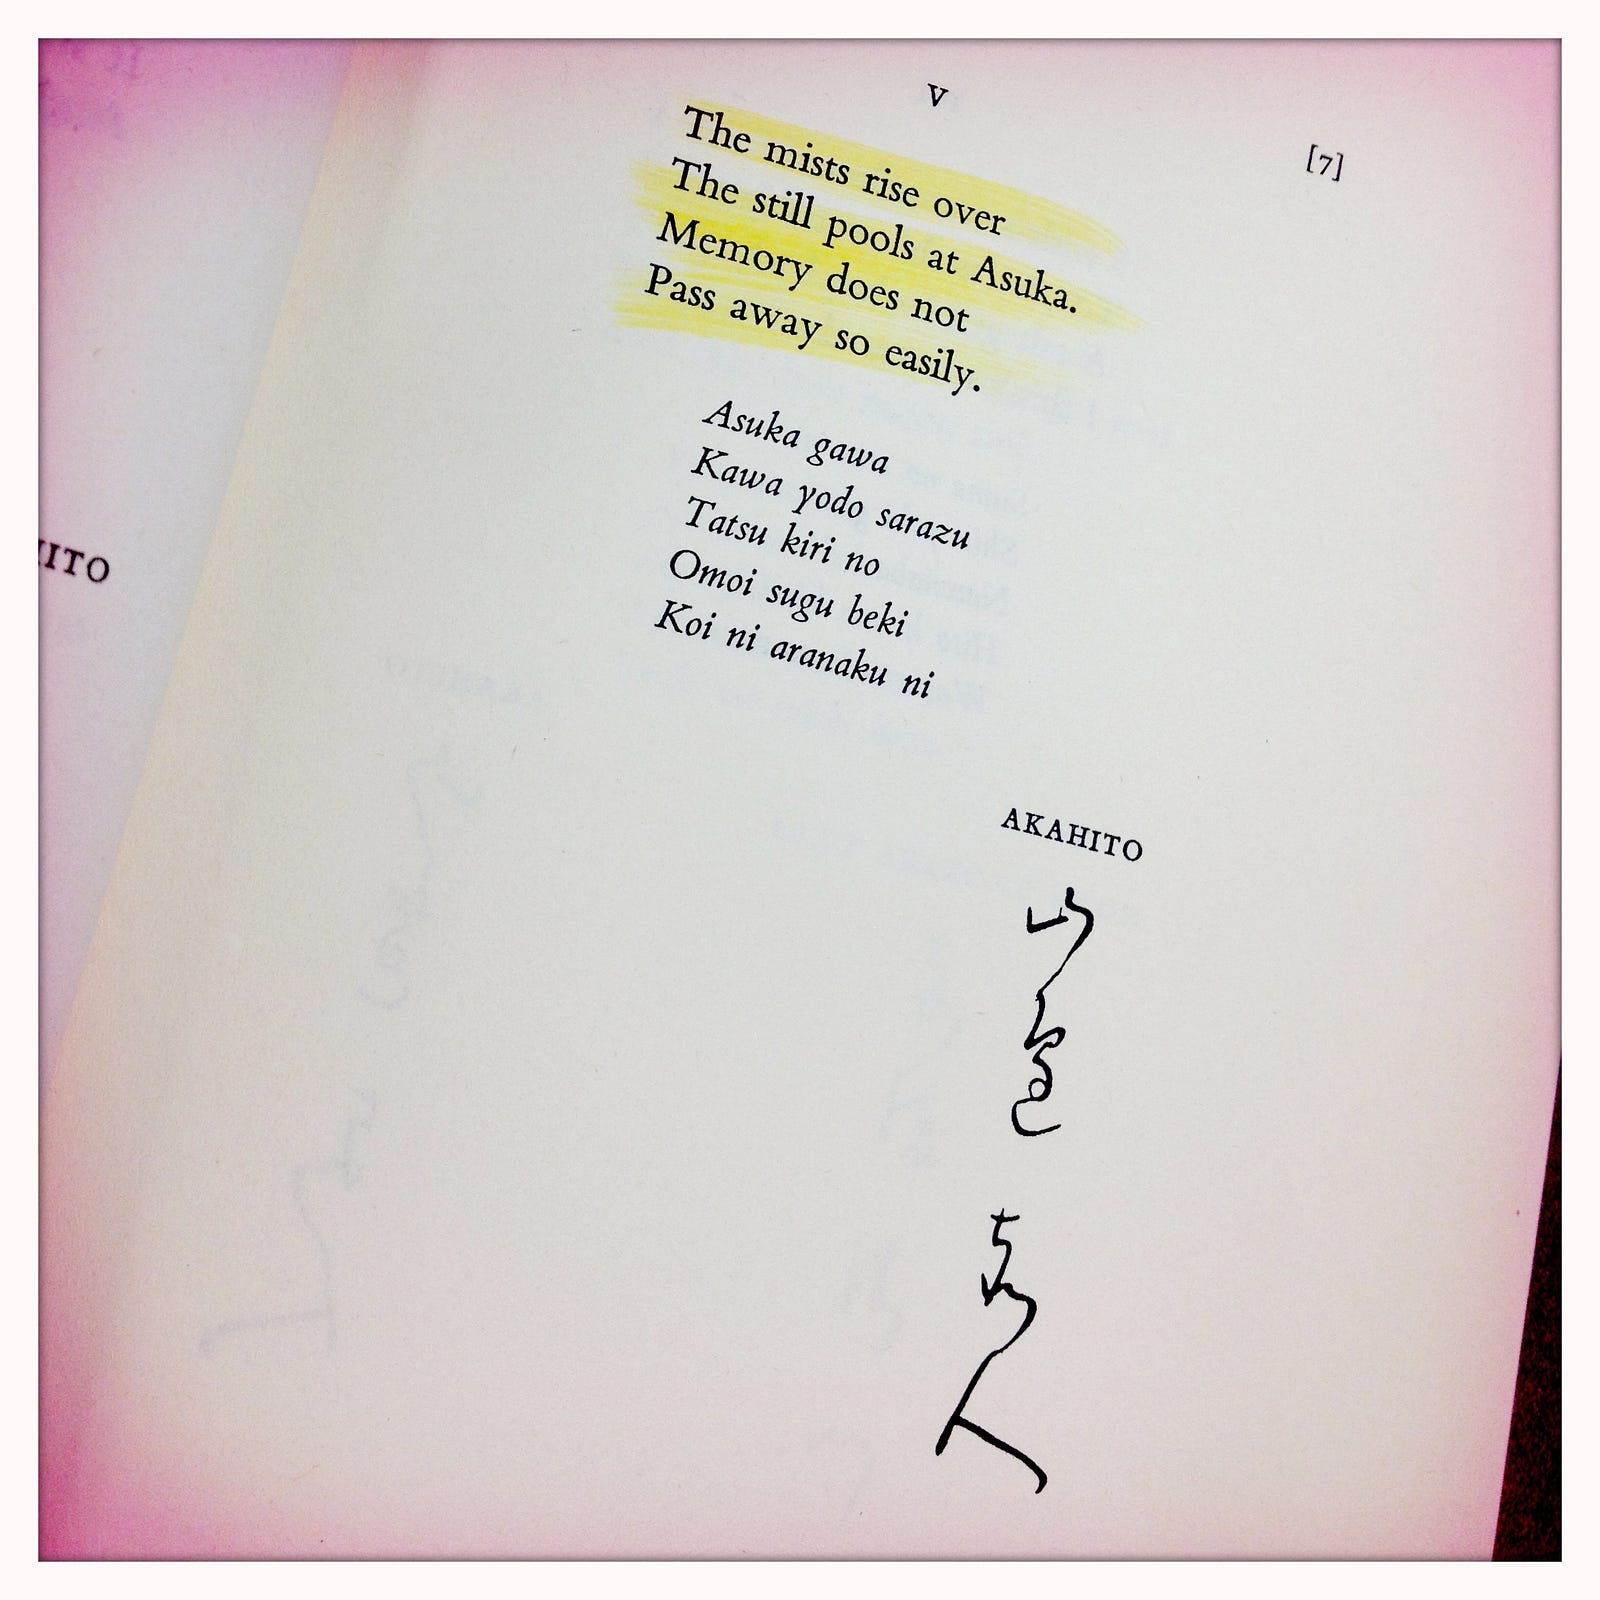 V
[7]
The mists rise over
The still pools at Asuka.
Memory does not
Pass away so easily.
Asuka gawa
Kawa yodo sarazu
Tatsu kiri no
Omoi sugu beki
Koi ni aranaku ni
HITO
AKAHITO
山邊
赤人